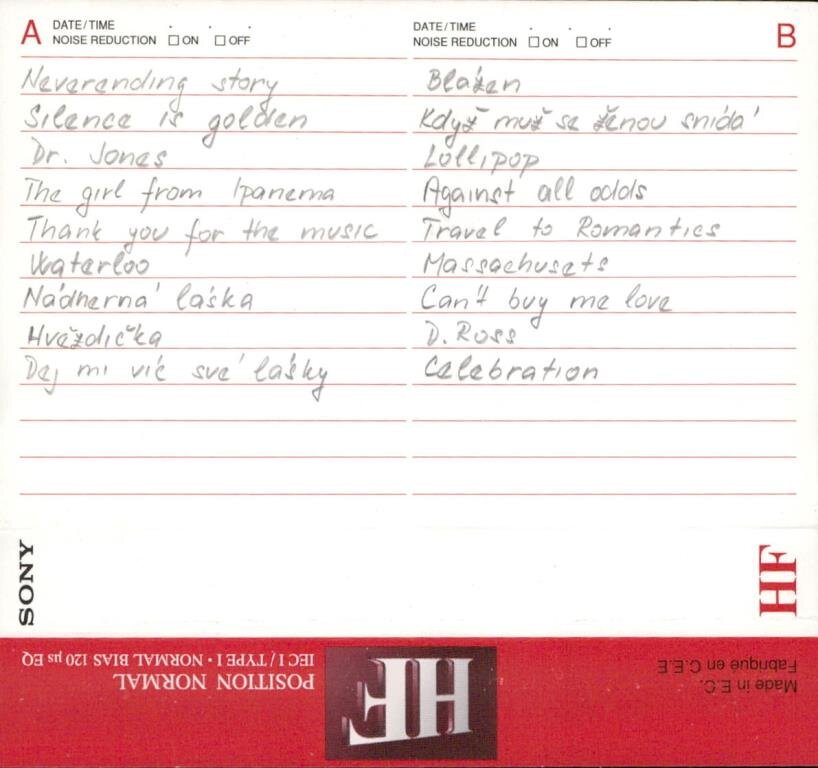 A DATE/TIME . . .
NOISE REDUCTION ☐ ON ☐ OFF
Neverending story
Silence is golden
Dr. Jones
The girl from Ipanema
Thank you for the music
Waterloo
Nádherná láska
Hvěždička
Dej mi víc své lásky
DATE/TIME . . . B
NOISE REDUCTION ☐ ON ☐ OFF
Blážen
Když muž se ženou snídá
Lollipop
Against all odds
Travel to Romantics
Massachusets
Can't buy me love
D. Ross
Celebration
SONY
HF
POSITION NORMAL
IEC I / TYPE I • NORMAL BIAS 120 µs EQ
HF
Made in E.C.
Fabriqué en C.E.E